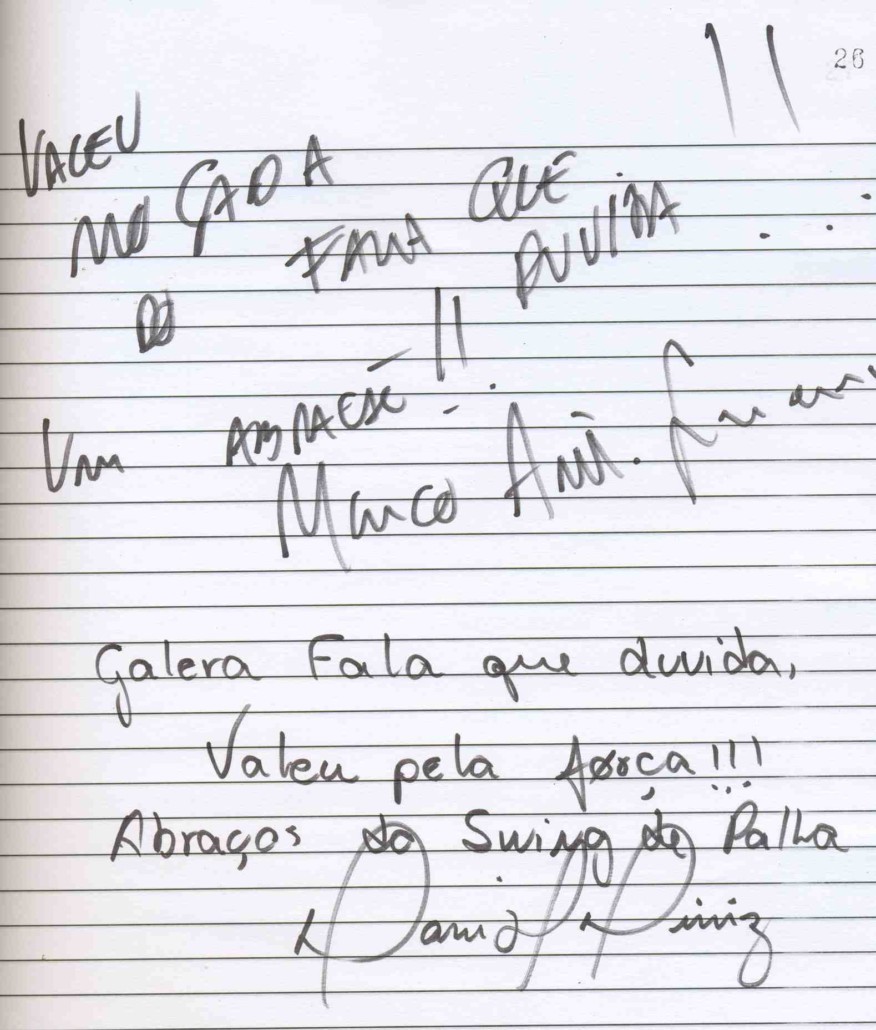 26
VALEU
MOÇADA
DO FALA QUE DUVIDA ...!!
Um ABRAÇO!!
Marco
Galera Fala que duvida,
Valeu pela força!!!
Abraços do Swing de Palha
David Diniz